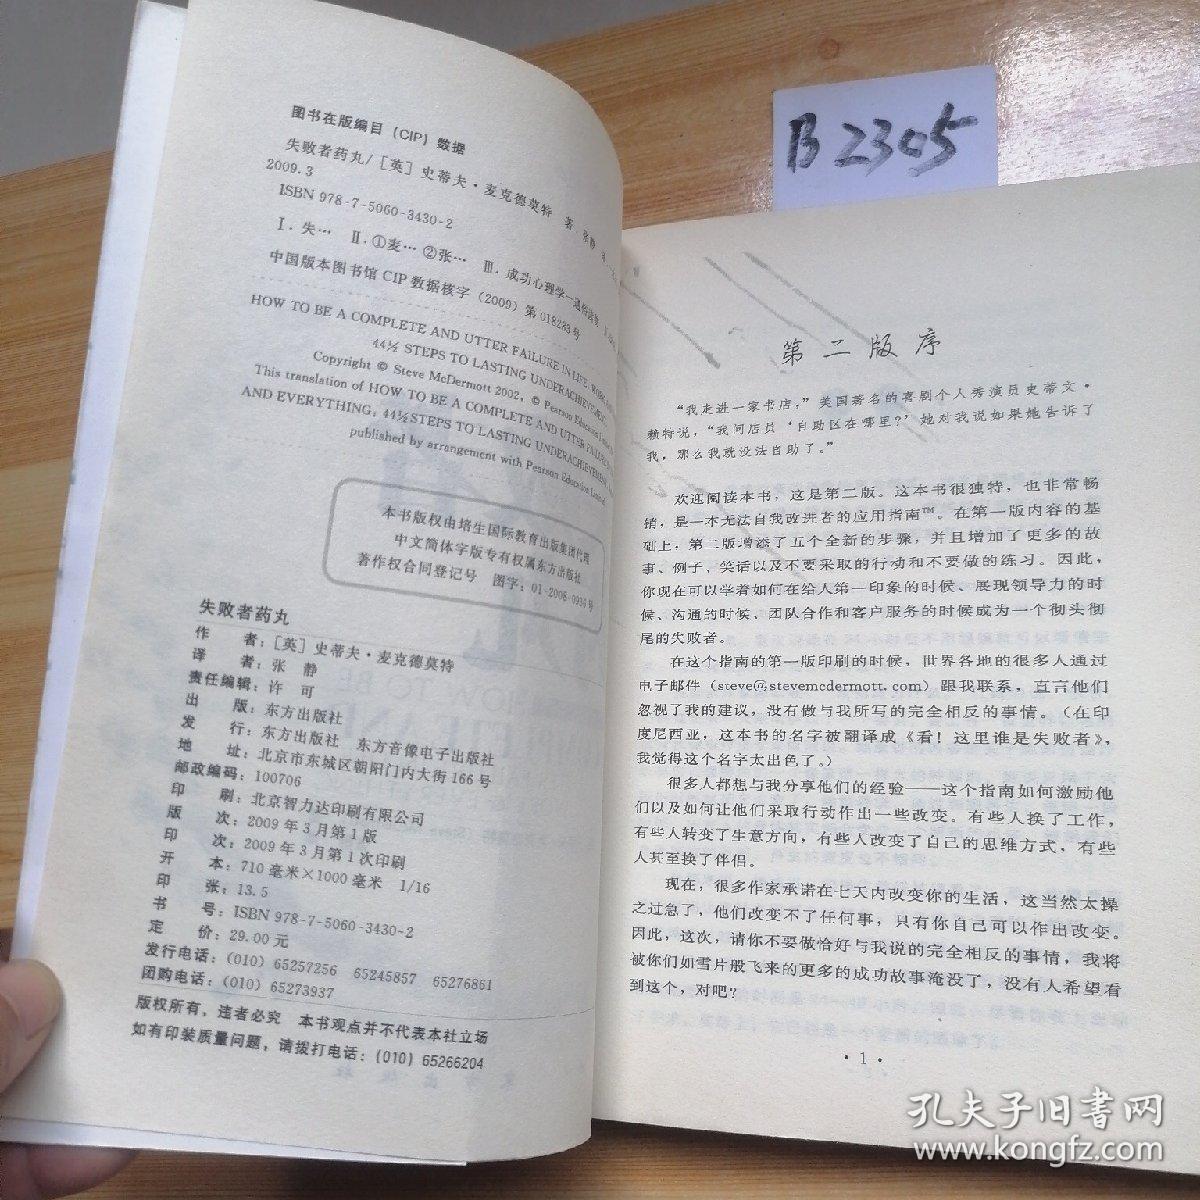 图书在版编目(CIP)数据
失败者药丸/[英]史蒂夫·麦克德莫特 著.张静
2009.3
ISBN 978-7-5060-3430-2
Ⅰ.失… Ⅱ.①麦…②张… Ⅲ.成功心理学—通俗读物
中国版本图书馆CIP数据核字(2009)第018283号
HOW TO BE A COMPLETE AND UTTER FAILURE IN LIFE, WORK
44½ STEPS TO LASTING UNDERACHIEVEMENT
Copyright © Steve McDermott 2002, © Pearson Education
This translation of HOW TO BE A COMPLETE AND UTTER FAILURE IN
AND EVERYTHING, 44½ STEPS TO LASTING UNDERACHIEVEMENT
published by arrangement with Pearson Education Limited
本书版权由培生国际教育出版集团代理
中文简体字版专有权属东方出版社
著作权合同登记号 图字:01-2008-0936号
失败者药丸
作 者:[英]史蒂夫·麦克德莫特
译 者:张 静
责任编辑:许 可
出 版:东方出版社
发 行:东方出版社 东方音像电子出版社
地 址:北京市东城区朝阳门内大街166号
邮政编码:100706
印 刷:北京智力达印刷有限公司
版 次:2009年3月第1版
印 次:2009年3月第1次印刷
开 本:710毫米×1000毫米 1/16
印 张:13.5
书 号:ISBN 978-7-5060-3430-2
定 价:29.00元
发行电话:(010) 65257256 65245857 65276861
团购电话:(010) 65273937
版权所有,违者必究 本书观点并不代表本社立场
如有印装质量问题,请拨打电话:(010) 65266204
B2305
第二版序
“我走进一家书店,”美国著名的喜剧个人秀演员史蒂文·
赖特说,“我问店员‘自助区在哪里?’她对我说如果她告诉了
我,那么我就没法自助了。”
欢迎阅读本书,这是第二版。这本书很独特,也非常畅
销,是一本无法自我改进者的应用指南™。在第一版内容的基
础上,第二版增添了五个全新的步骤,并且增加了更多的故
事、例子、笑话以及不要采取的行动和不要做的练习。因此,
你现在可以学着如何在给人第一印象的时候、展现领导力的时
候、沟通的时候、团队合作和客户服务的时候成为一个彻头彻
尾的失败者。
在这个指南的第一版印刷的时候,世界各地的很多人通过
电子邮件(steve@stevemcdermott.com)跟我联系,直言他们
忽视了我的建议,没有做与我所写的完全相反的事情。(在印
度尼西亚,这本书的名字被翻译成《看!这里谁是失败者》,
我觉得这个名字太出色了。)
很多人都想与我分享他们的经验——这个指南如何激励他
们以及如何让他们采取行动作出一些改变。有些人换了工作,
有些人转变了生意方向,有些人改变了自己的思维方式,有些
人甚至换了伴侣。
现在,很多作家承诺在七天内改变你的生活,这当然太操
之过急了,他们改变不了任何事,只有你自己可以作出改变。
因此,这次,请你不要做恰好与我说的完全相反的事情,我将
被你们如雪片般飞来的更多的成功故事淹没了,没有人希望看
到这个,对吧?
·1·
孔夫子旧书网
www.kongfz.com